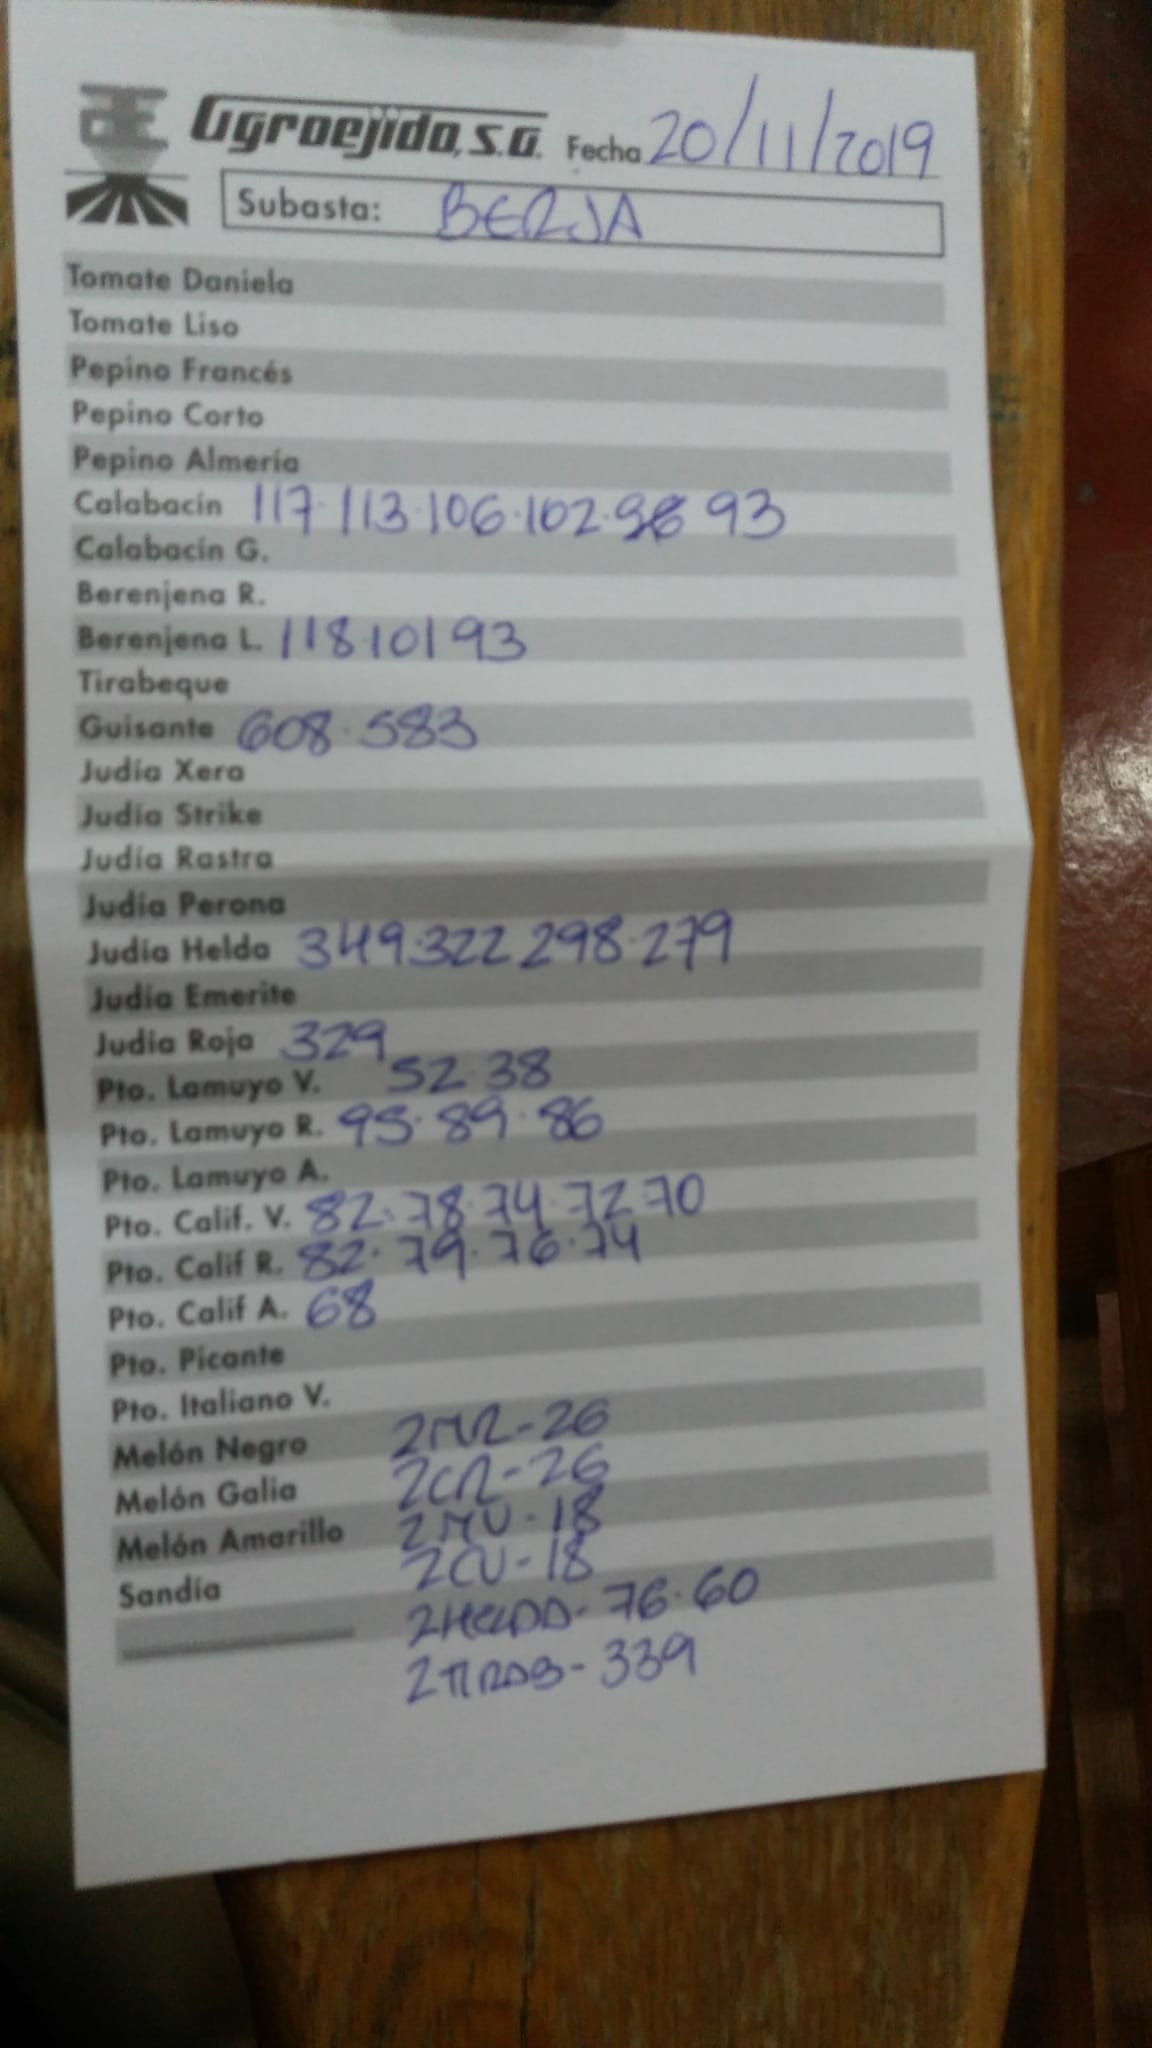 Agroejido, S.A. Fecha 20/11/2019
Subasta: BERJA
Tomate Daniela
Tomate Liso
Pepino Francés
Pepino Corto
Pepino Almería
Calabacín 117·113·106·102·98 93
Calabacín G.
Berenjena R.
Berenjena L. 118·101 93
Tirabeque
Guisante 608·583
Judía Xera
Judía Strike
Judía Rastra
Judía Perona
Judía Helda 349·322 298·279
Judía Emerite
Judía Roja 329
Pto. Lamuyo V. 52·38
Pto. Lamuyo R. 95·89·86
Pto. Lamuyo A.
Pto. Calif. V. 82·78·74·72·70
Pto. Calif R. 82·79·76·74
Pto. Calif A. 68
Pto. Picante
Pto. Italiano V.
Melón Negro 2MR-26
Melón Galia 2CR-26
Melón Amarillo 2MV-18
Sandía 2CV-18
2HELDA-76·60
2TIRAB-339